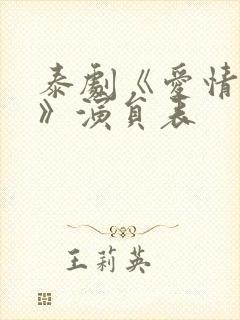 泰劇《愛情
》演員表
王莉英